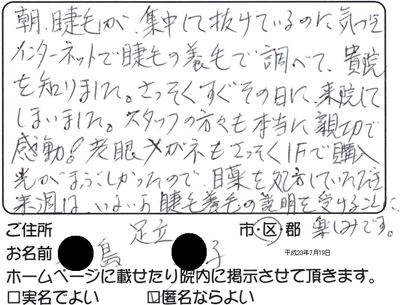 朝、睫毛が、集中して抜けているのに気づき
インターネットで睫毛の養毛で調べて、貴院
を知りました。さっそくすぐその日に、来院して
しまいました。スタッフの方々も本当に親切で
感動!老眼メガネもさっそく1Fで購入
光がまぶしかったので、目薬を処方していただき
来週は、いよいよ睫毛養毛の説明を受けることに
楽しみです。
ご住所 足立 市・区・郡
お名前 島 子 平成23年7月19日
ホームページに載せたり院内に掲示させて頂きます。
□実名でよい ☑匿名ならよい